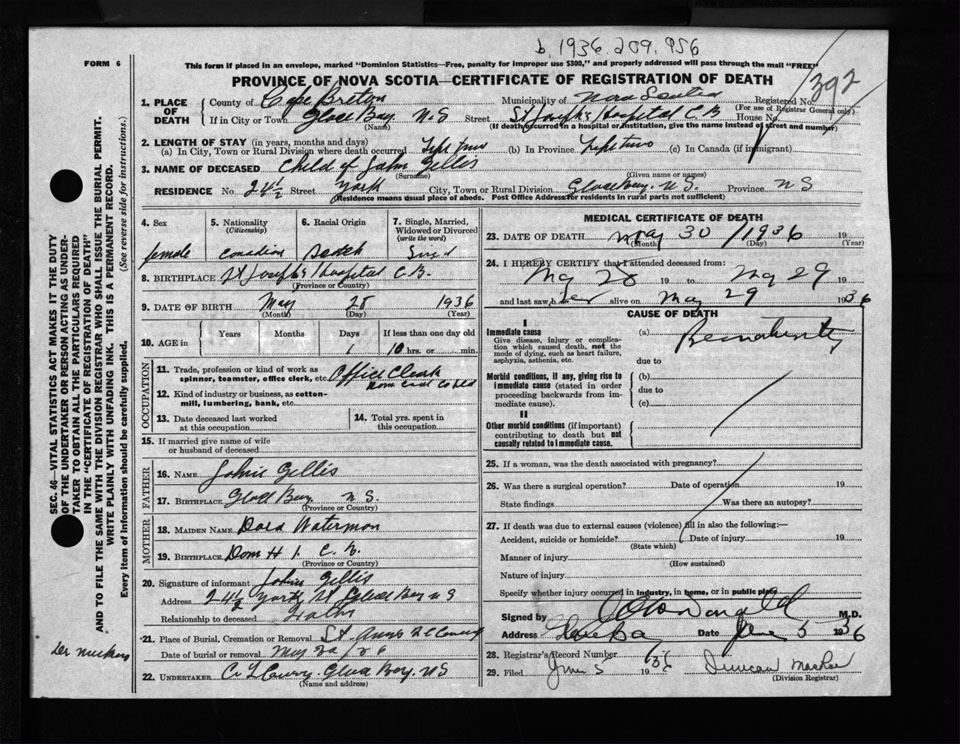 b. 1936. 209. 956
FORM 6
This form if placed in an envelope, marked "Dominion Statistics—Free, penalty for improper use $300," and properly addressed will pass through the mail "FREE"
PROVINCE OF NOVA SCOTIA—CERTIFICATE OF REGISTRATION OF DEATH
392
1. PLACE OF DEATH
County of Cape Breton Municipality of Nova Scotia Registered No.
(For use of Registrar General only)
If in City or Town Glace Bay N.S Street St Joseph's Hospital C.B. House No.
(Name) (If death occurred in a hospital or institution, give the name instead of street and number)
2. LENGTH OF STAY (in years, months and days)
(a) In City, Town or Rural Division where death occurred (b) In Province (c) In Canada (if immigrant)
3. NAME OF DECEASED Child of John Gillis
(Surname) (Given name or names)
RESIDENCE No. 24½ Street York City, Town or Rural Division Glace Bay. N.S. Province N S
(Residence means usual place of abode. Post Office Address for residents in rural parts not sufficient)
4. Sex
female
5. Nationality
(Citizenship)
Canadian
6. Racial Origin
Scotch
7. Single, Married, Widowed or Divorced
(write the word)
8. BIRTHPLACE St Joseph's Hospital C.B.
(Province or Country)
9. DATE OF BIRTH May 28 1936
(Month) (Day) (Year)
10. AGE in
Years
Months
Days
1
If less than one day old
10 hrs. or min.
OCCUPATION
11. Trade, profession or kind of work as spinner, teamster, office clerk, etc. Office Clerk
12. Kind of industry or business, as cotton-mill, lumbering, bank, etc.
13. Date deceased last worked at this occupation
14. Total yrs. spent in this occupation
15. If married give name of wife or husband of deceased
FATHER
16. NAME Gillis
17. BIRTHPLACE Glace Bay N S.
(Province or Country)
MOTHER
18. MAIDEN NAME Dora
19. BIRTHPLACE Dom # 1 C. B.
(Province or Country)
20. Signature of informant John Gillis
Address 24½ York St Glace Bay N S
Relationship to deceased
21. Place of Burial, Cremation or Removal St. Ann's
Date of burial or removal
22. UNDERTAKER Glace Bay. N S
(Name and address)
MEDICAL CERTIFICATE OF DEATH
23. DATE OF DEATH May 30 / 1936 19
(Month) (Day) (Year)
24. I HEREBY CERTIFY that I attended deceased from:
May 28 19 to May 29 19
and last saw her alive on May 29 1936
CAUSE OF DEATH
I
Immediate cause
Give disease, injury or complication which caused death, not the mode of dying, such as heart failure, asphyxia, asthenia, etc.
(a)
due to
Morbid conditions, if any, giving rise to immediate cause (stated in order proceeding backwards from immediate cause).
(b)
due to
(c)
II
Other morbid conditions (if important) contributing to death but not causally related to immediate cause.
25. If a woman, was the death associated with pregnancy?
26. Was there a surgical operation? Date of operation 19
State findings Was there an autopsy?
27. If death was due to external causes (violence) fill in also the following:—
Accident, suicide or homicide? Date of injury 19
(State which)
Manner of injury
(How sustained)
Nature of injury
Specify whether injury occurred in industry, in home, or in public place
Signed by M.D.
Address Glace Bay Date June 5 1936
28. Registrar's Record Number
29. Filed June 5 1936 Duncan
(Division Registrar)
SEC. 46—VITAL STATISTICS ACT MAKES IT THE DUTY
OF THE UNDERTAKER OR PERSON ACTING AS UNDER-
TAKER TO OBTAIN ALL THE PARTICULARS REQUIRED
IN THE "CERTIFICATE OF REGISTRATION OF DEATH"
AND TO FILE THE SAME WITH THE DIVISION REGISTRAR WHO SHALL ISSUE THE BURIAL PERMIT.
WRITE PLAINLY WITH UNFADING INK. THIS IS A PERMANENT RECORD.
Every item of Information should be carefully supplied. (See reverse side for instructions.)